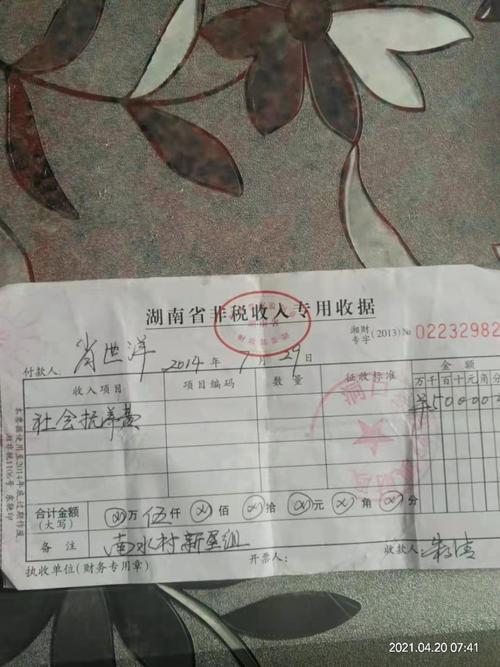 湖南省非税收入专用收据
湘财
专字 (2013) No 02232982
付款人： 肖世洋 2014年 1月 29日
收入项目 项目编码 数量 征收标准 金额
万千百十元角分
社会抚养费 ¥50000
合计金额 ⊗万 伍仟 ⊗佰 ⊗拾 ⊗元 ⊗角 ⊗分
(大写)
备注 南水村新屋组
执收单位（财务专用章） 开票人： 收款人：
本票据使用至2014年底,过期作废
2021.04.20 07:41